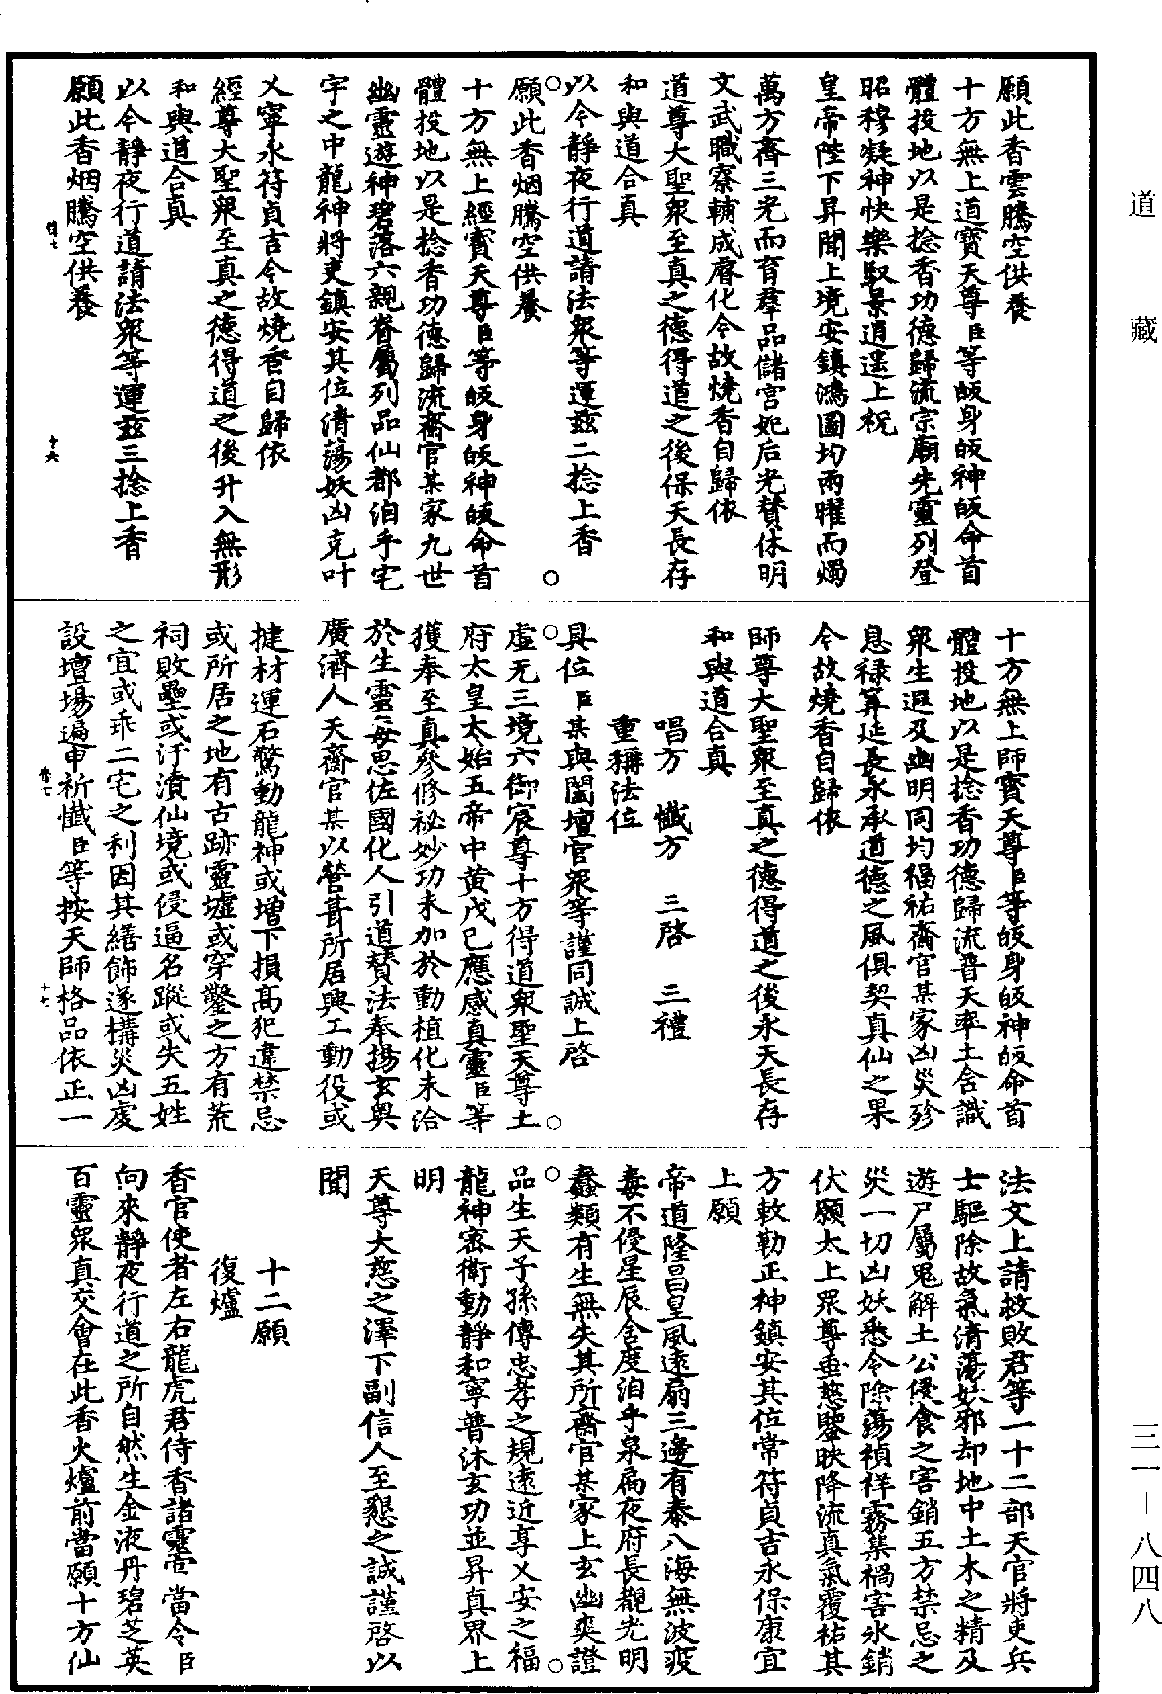 道藏
三一—八四八
願此香雲騰空供養
十方無上道寶天尊臣等皈身皈神皈命首
體投地以是捻香功德歸流宗廟先靈列登
昭穆凝神快樂馭景逍遙上祝
皇帝陛下昇聞上境安鎮鴻圖均兩曜而燭
萬方齊三光而育羣品儲宮妃后光贊休明
文武職寮輔成睿化今故燒香自歸依
道尊大聖眾至真之德得道之後保天長存
和與道合真
以今靜夜行道請法眾等運茲二捻上香
願此香烟騰空供養
十方無上經寶天尊臣等皈身皈神皈命首
體投地以是捻香功德歸流齋官某家九世
幽靈遊神碧落六親眷屬列品仙都洎乎宅
宇之中龍神將吏鎮安其位清蕩妖凶克叶
乂寧永符貞吉今故燒香自歸依
經尊大聖眾至真之德得道之後升入無形
和與道合真
以今靜夜行道請法眾等運茲三捻上香
願此香烟騰空供養
十方無上師寶天尊臣等皈身皈神皈命首
體投地以是捻香功德歸流普天率土含識
眾生遐及幽明同均福祐齋官某家凶災殄
息祿筭延長永承道德之風俱契真仙之果
今故燒香自歸依
師尊大聖眾至真之德得道之後永天長存
和與道合真
唱方　懺方　三啓　三禮
重稱法位
具位臣某與闔壇官眾等謹同誠上啓
虛无三境六御宸尊十方得道眾聖天尊土
府太皇太始五帝中黃戊己應感真靈臣等
獲奉至真參修祕妙功未加於動植化未洽
於生靈每思佐國化人引道贊法奉揚玄奧
廣濟人天齋官某以營葺所居興工動役或
揵材運石驚動龍神或增下損高犯違禁忌
或所居之地有古跡靈墟或穿鑿之方有荒
祠敗壘或汙瀆仙境或侵逼名蹤或失五姓
之宜或乖二宅之利因其繕飾遂構災凶虔
設壇場遍申祈懺臣等按天師格品依正一
法文上請救敗君等一十二部天官將吏兵
士驅除故氣清蕩妖邪却地中土木之精及
遊尸屬鬼解土公侵食之害銷五方禁忌之
災一切凶妖悉令除蕩禎祥霧集禍害氷銷
伏願太上眾尊垂慈鑒映降流真氣覆祐其
方敕勒正神鎮安其位常符貞吉永保康宜
上願
帝道隆昌皇風遠扇三邊有泰八海無波疫
毒不侵星辰合度洎乎泉扃夜府長覩光明
蠢類有生無失其所齋官某家上玄幽爽證
品生天子孫傳忠孝之規遠近享乂安之福
龍神密衛動靜和寧普沐玄功並昇真界上
明
天尊大慈之澤下副信人至懇之誠謹啓以
聞
十二願
復爐
香官使者左右龍虎君侍香諸靈官當令臣
向來靜夜行道之所自然生金液丹碧芝英
百靈眾真交會在此香火爐前當願十方仙